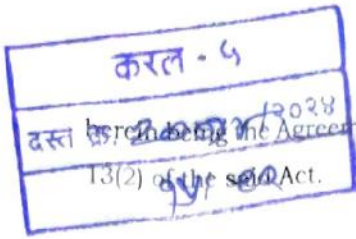 करल - ५
दस्त क्र. /२०२४
herein being the Agreem
13(2) of the said Act.